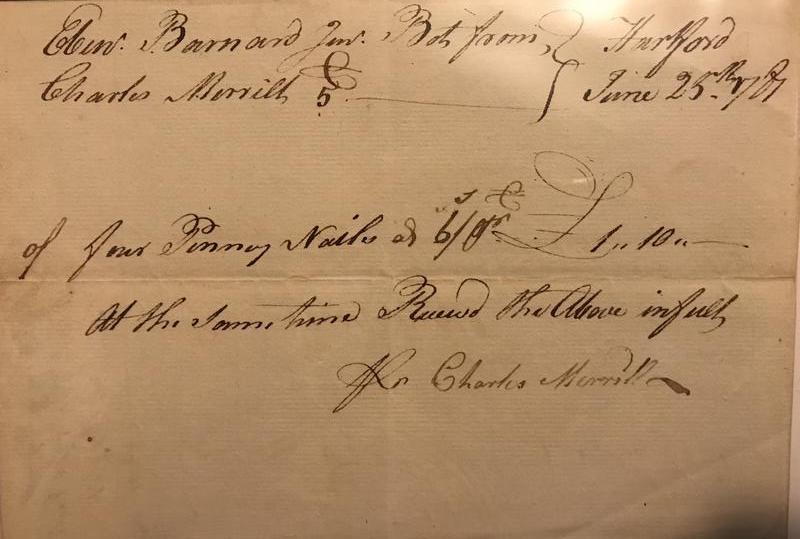 Ebenr. Barnard Junr. Bot from Hartford
Charles Merrill 5 June 25th 1787
of four Penney Nails at 6/ pr £ 1,, 10,,
At the same time Receivd the Above in full
Pr Charles Merrill